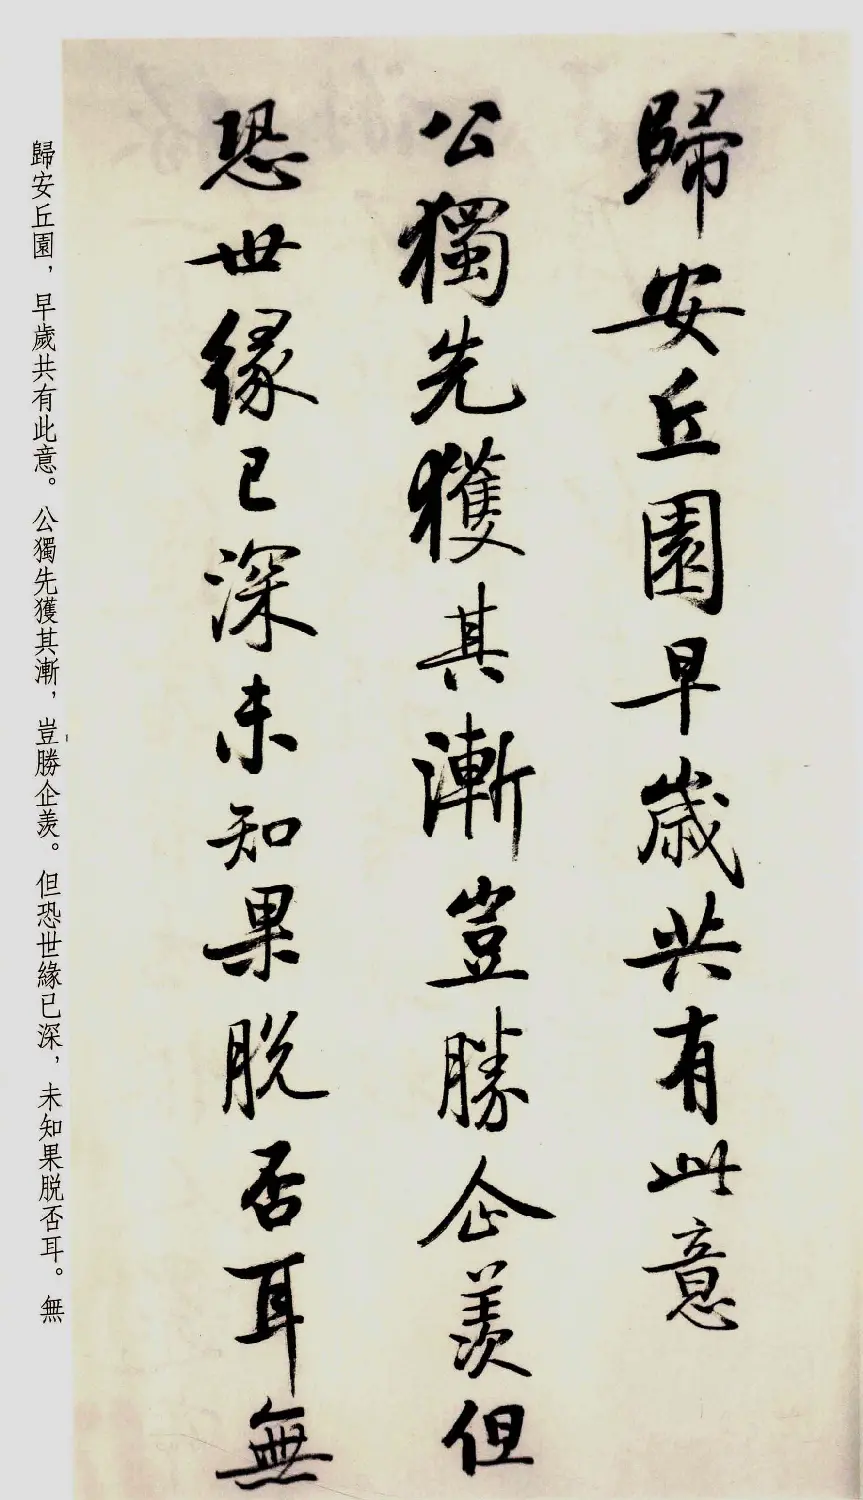 歸安丘園早歲共有此意
公獨先獲其漸豈勝企羨但
恐世緣已深未知果脱否耳無
歸安丘園，早歲共有此意。公獨先獲其漸，豈勝企羨。但恐世緣已深，未知果脱否耳。無